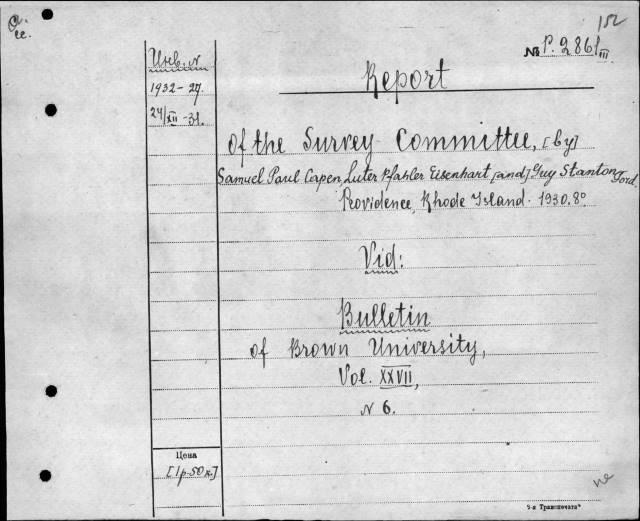 152
№ P. 2861 III
Инв. N
1932-27.
24/XII-31.
Report
of the Survey Committee, [by]
Samuel Paul Capen, Luter Pfahler Eisenhart [and] Guy Stanton Ford.
Providence, Rhode Island. 1930. 8°
Vid:
Bulletin
of Brown University,
Vol. XXVII,
N 6.
Цена
[1p-50к.]
"9-я Транспечати"